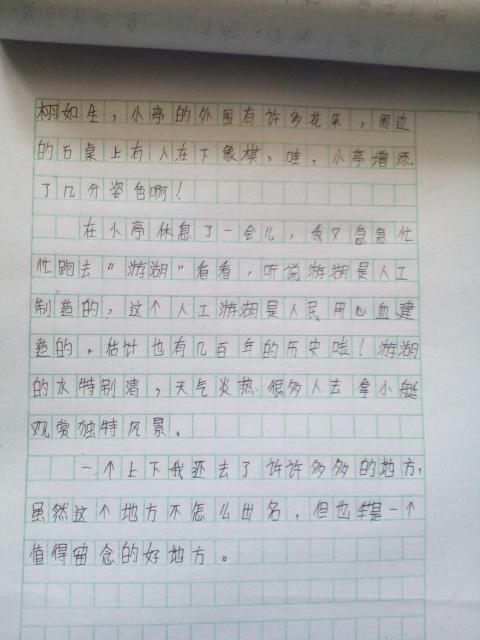 栩如生，小亭的外围有许多花朵，周边
的石桌上有人在下象棋，哇，小亭增添
了几分姿色啊！
在小亭休息了一会儿，我又急急忙
忙跑去"游湖"看看，听说游湖是人工
制造的，这个人工游湖是人民用心血建
造的，估计也有几百年的历史哇！游湖
的水特别清，天气炎热，很多人去拿小艇
观赏独特风景。
一个上下我还去了许许多多的地方，
虽然这个地方不怎么出名，但也一个
值得留念的好地方。